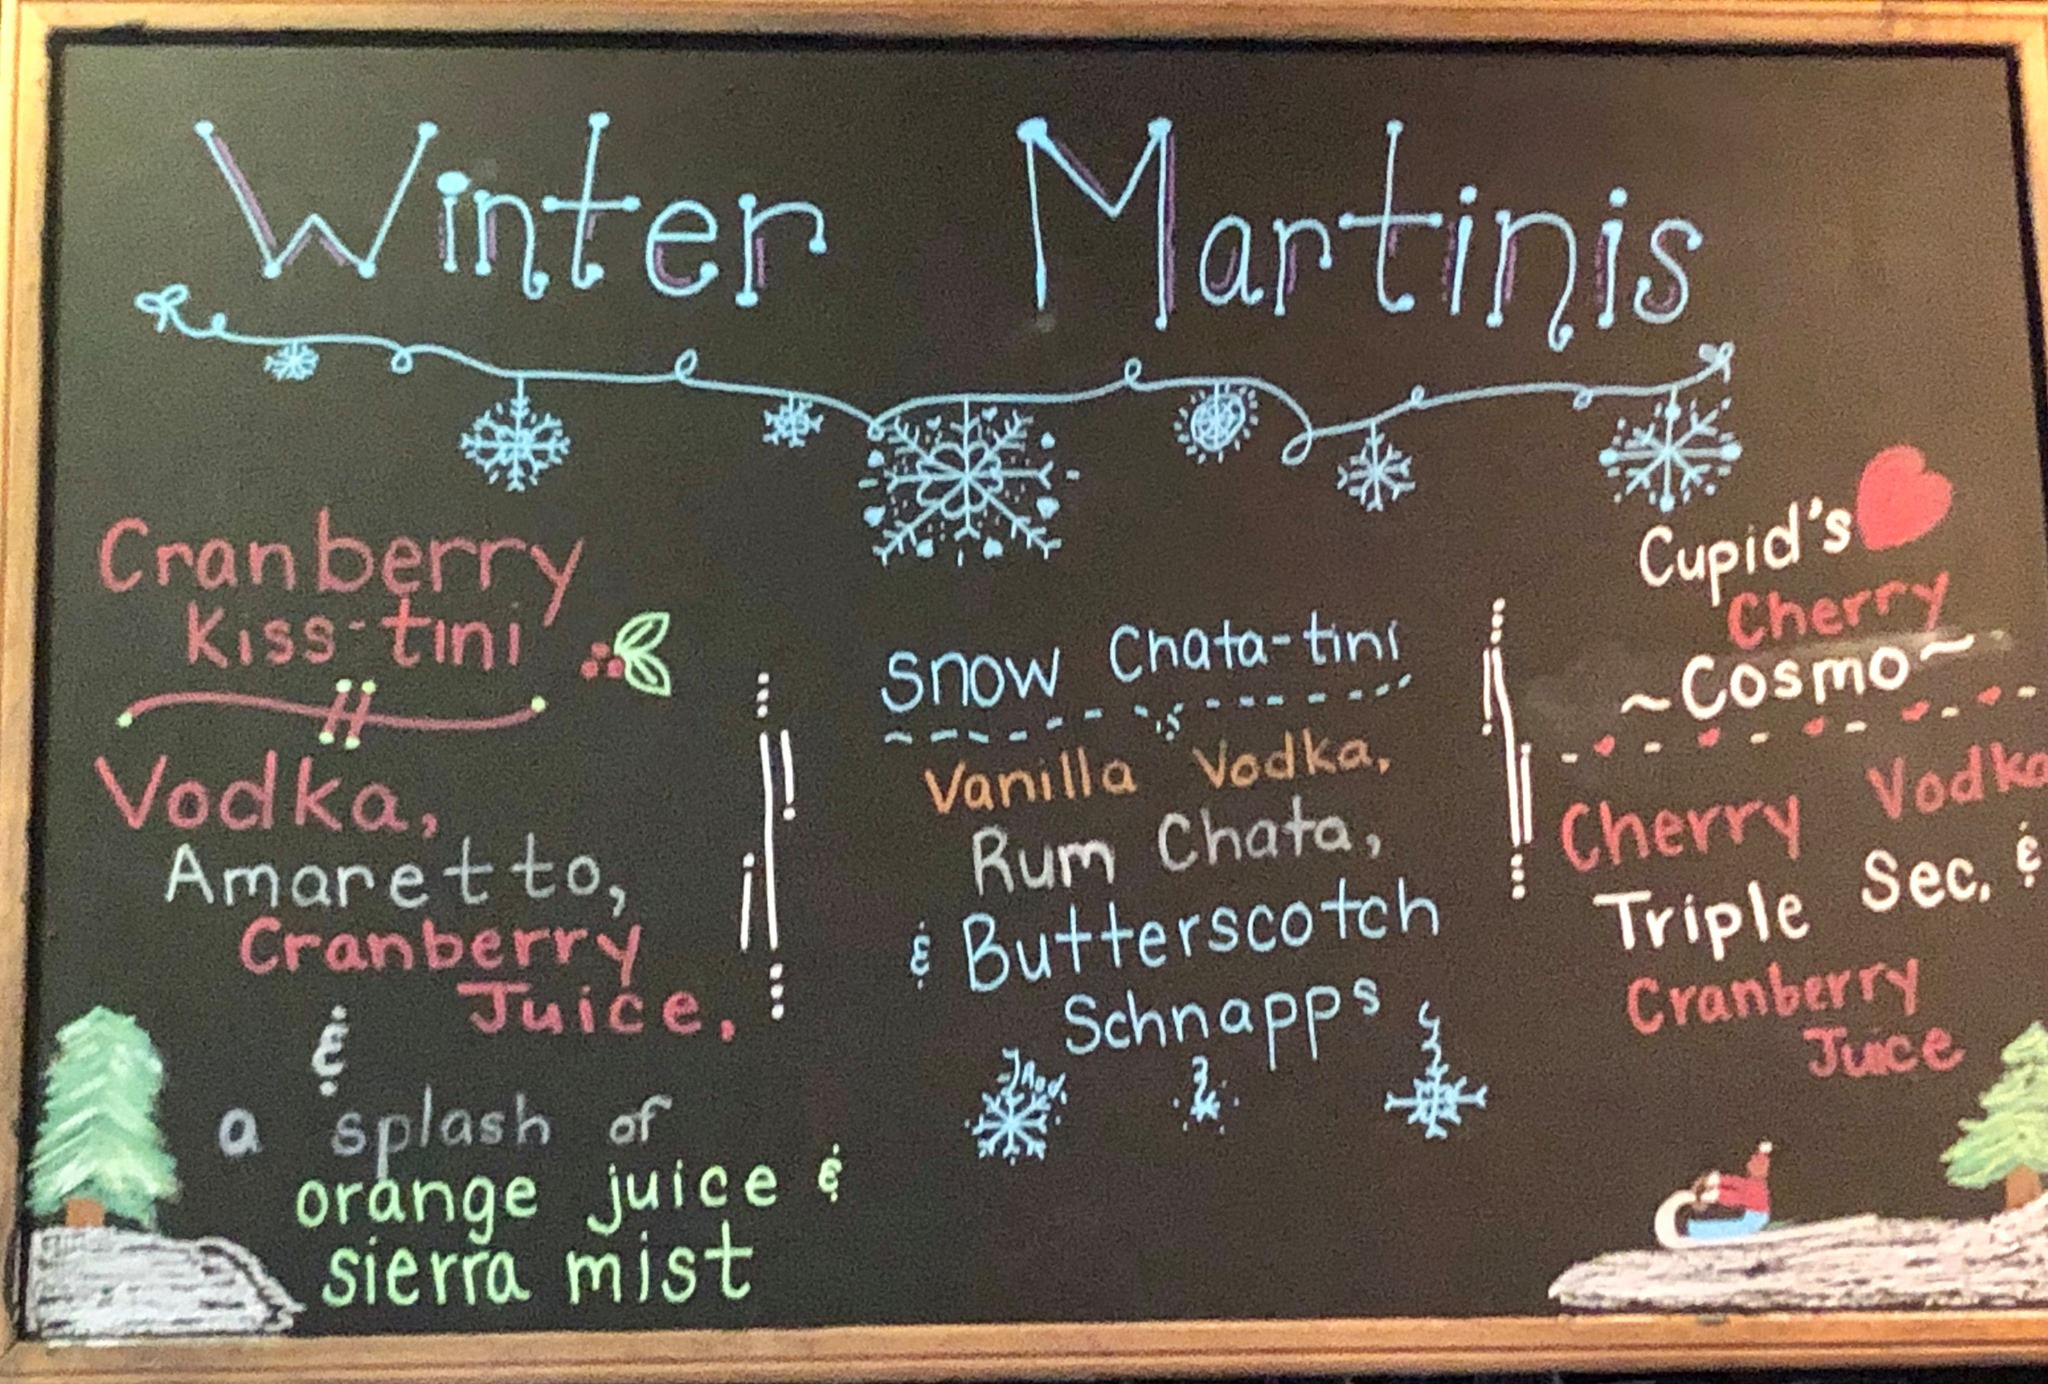 Winter Martinis
Cranberry
Kiss-tini
Vodka,
Amaretto,
Cranberry
Juice,
&
a splash of
orange juice &
sierra mist
Snow Chata-tini
Vanilla Vodka,
Rum Chata,
& Butterscotch
Schnapps
Cupid's
Cherry
~Cosmo~
Cherry Vodka
Triple Sec, &
Cranberry
Juice